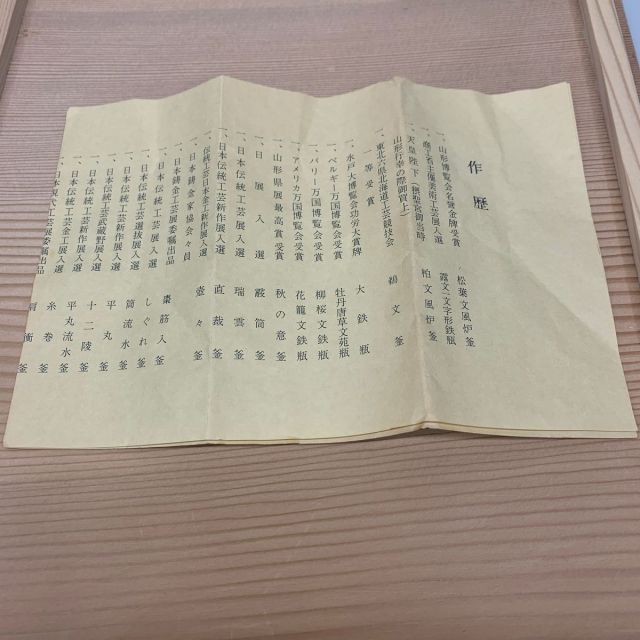 作歴
一、山形博覧会名誉金牌受賞 松葉文風炉釜
一、商工省主催美術工芸展入選 露文一文字形鉄瓶
一、天皇陛下(摂政宮御当時 柏文風炉釜
山形行幸の際御買上)
一、東北六県北海道工芸競技会 鶴文釜
一等受賞
一、水戸大博覧会功労大賞牌 大鉄瓶
一、ベルギー万国博覧会受賞 牡丹唐草文苑瓶
一、パリー万国博覧会受賞 柳桜文鉄瓶
一、アメリカ万国博覧会受賞 花籠文鉄瓶
一、山形県展最高賞受賞 秋の意釜
一、日展入選 霰筒釜
一、日本伝統工芸展入選 瑞雲釜
一、日本伝統工芸新作展入選 直裁釜
一、伝統工芸日本金工新作展入選 壷々釜
一、日本鋳金家協会々員
一、日本鋳金工芸展委嘱出品 棗筋入釜
一、日本伝統工芸展入選 しぐれ釜
一、日本伝統工芸新作展入選 筒流水釜
一、日本伝統工芸選抜展入選 平丸釜
一、日本伝統工芸武蔵野展入選 十二陵釜
一、日本伝統工芸金工展入選 平丸流水釜
一、日本現代工芸展委嘱出品 糸巻釜
肩衝釜